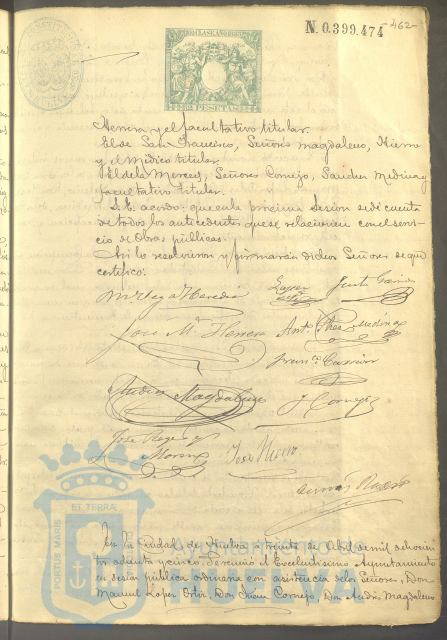 N. 0.399.474
462
2 PESETAS
Herrera y el facultativo titular.
El de San Francisco, Señores Magdaleno, Hierro
y el Médico titular.
El de la Merced, Señores Cornejo, Sanchez Medina y
facultativo titular.
Se acordó: que en la próxima sesion se dé cuenta
de todos los antecedentes que se relacionen con el servi-
cio de Obras públicas.
Asi lo resolvieron y firmarán dichos Señores de que
certifico.
José Mª Herrera
Medina
Magdaleno
J. Cornejo
José Hierro
Moreno
PORTUS MARIS
ET TERRAE
Ayuntamiento de
HUELVA
En la Ciudad de Huelva a treinta de Abril de mil ochocien
tos ochenta y cinco, se reunió el Excelentísimo Ayuntamiento
en sesion pública ordinaria con asistencia de los señores, Don
Manuel López Ortiz, Don Juan Cornejo, Don Andrés Magdaleno